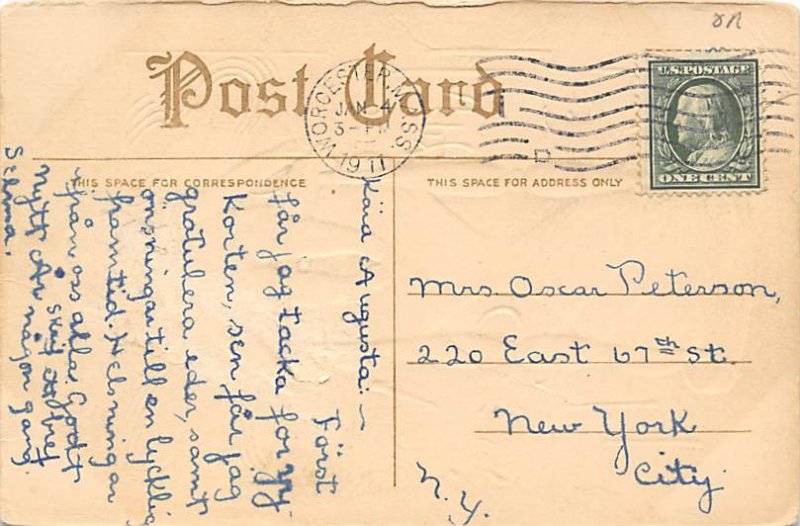 Post Card
WORCESTER, MASS.
JAN 4
3-PM
1911
U.S. POSTAGE
ONE CENT
THIS SPACE FOR CORRESPONDENCE
THIS SPACE FOR ADDRESS ONLY
Kära Augusta:~
Först
får jag tacka för
Korten, sen får jag
gratulera eder, samt
önskningar till en lycklig
framtid. Helsningar
från oss alla. Godt
Nytt År
skrif
någon gang
Selma.
Mrs Oscar Peterson,
220 East 67th St.
New York
City.
N.Y.